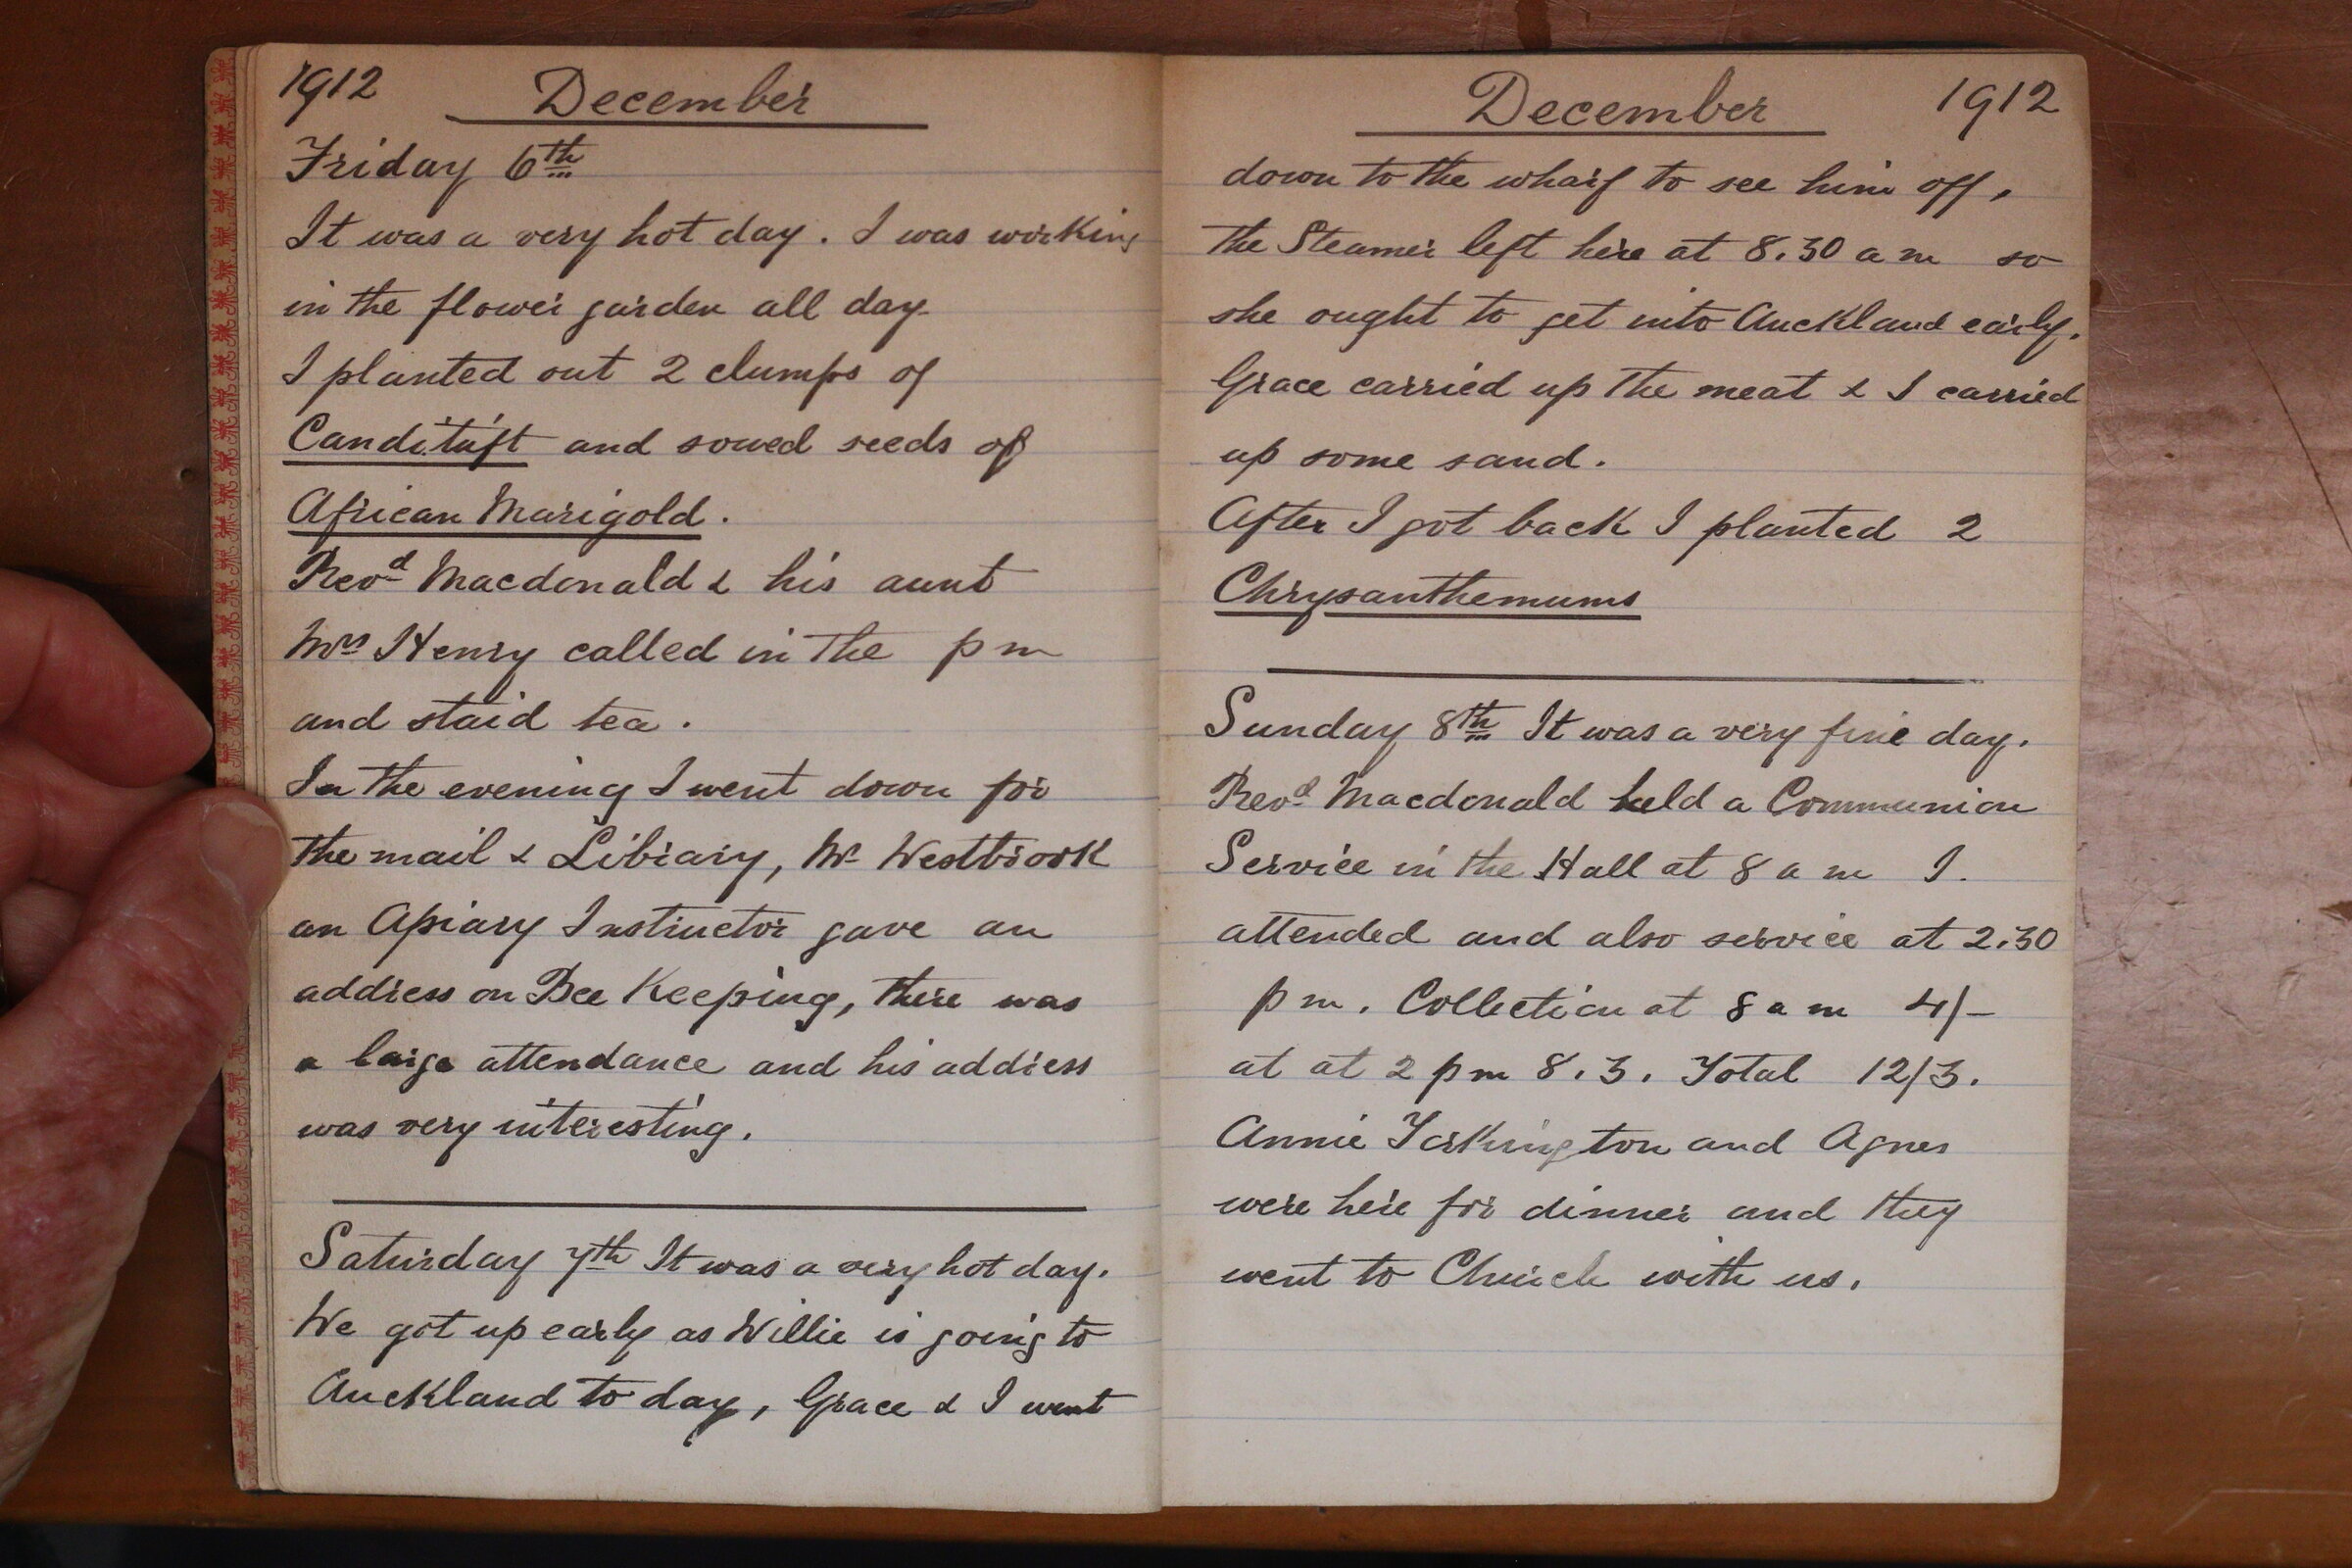 1912 December
Friday 6th
It was a very hot day. I was working
in the flower garden all day.
I planted out 2 clumps of
Canditúft and sowed seeds of
African Marigold.
Revd Macdonald & his aunt
Mrs Henry called in the p m
and staid tea.
In the evening I went down for
the mail & Library, Mr Westbrook
an Apiary Instructor gave an
address on Bee Keeping, there was
a large attendance and his address
was very interesting.
Saturday 7th It was a very hot day.
We got up early as Willie is going to
Auckland to day, Grace & I went
December 1912
down to the wharf to see him off,
the Steamer left here at 8.30 a m so
she ought to get into Auckland early.
Grace carried up the meat & I carried
up some sand.
After I got back I planted 2
Chrysanthemums
Sunday 8th It was a very fine day.
Revd Macdonald held a Communion
Service in the Hall at 8 a m I.
attended and also service at 2.30
p m. Collection at 8 a m 4/-
at at 2 p m 8.3. Total 12/3.
Annie Torkington and Agnes
were here for dinner and they
went to Church with us.